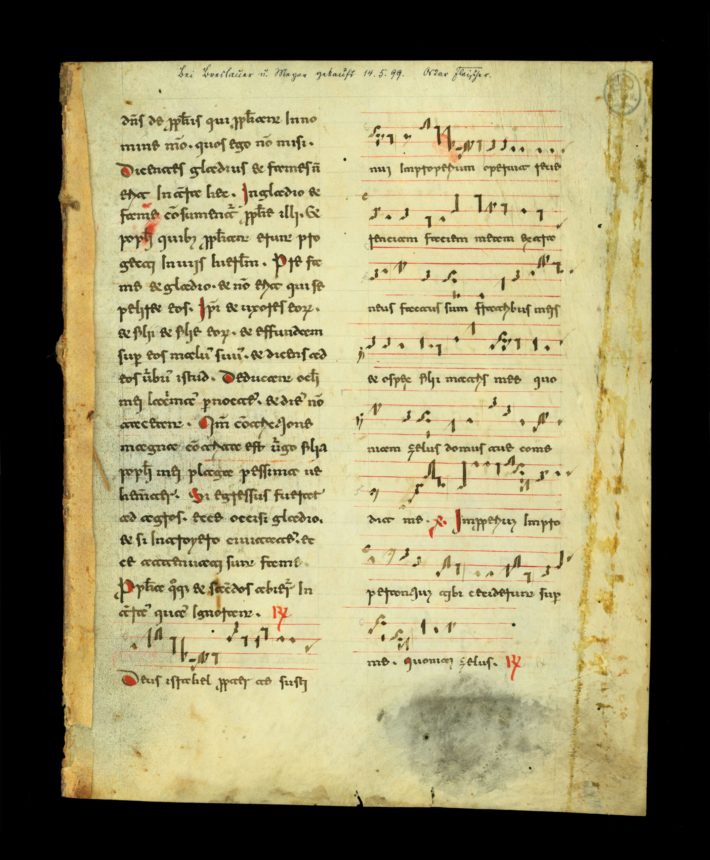 Bei Breslauer u. Meyer gekauft 14.5.99. Oskar Fleischer.
dñs de ꝓphis qui ꝓphant In no
mine mõ. quos ego nõ misi.
Dicentes gladius et fames ñ
erit In terra hac. In gladio et
fame consument ꝓphe illi. Et
popli quibꝫ ꝓphant erunt pro
iecti In viis hierlm. Pre fa
me et gladio. et nõ erit qui se
peliat eos. Ipi et uxores eoꝝ.
et filii et filie eoꝝ. et effundam
sup eos malũ suũ. et dices ad
eos ũbũ istud. Deducant ocli
mei lacrimã p noctẽ. et diẽ nõ
taceant. Qm̃ cõtritione
magna cõtrita est ũgo filia
popli mei plaga pessima ve
hemter. Si egressus fuero
ad agros. ecce occisi gladio.
et si Introiero civitatẽ. ec
ce attenuati sunt fame.
Ppha qq et sacdos abier In
trã quã Ignorant. R
Deus israhel ppter te susti
nui Improperium operuit reve
renciam faciem meam extra
neus factus sum fratribus meis
et ospes filiis matris mee quo
niam zelus domus tue come
dit me. V. Impperiũ Impro
perantiũ tibi ceciderunt sup
me. Quoniam zelus. R